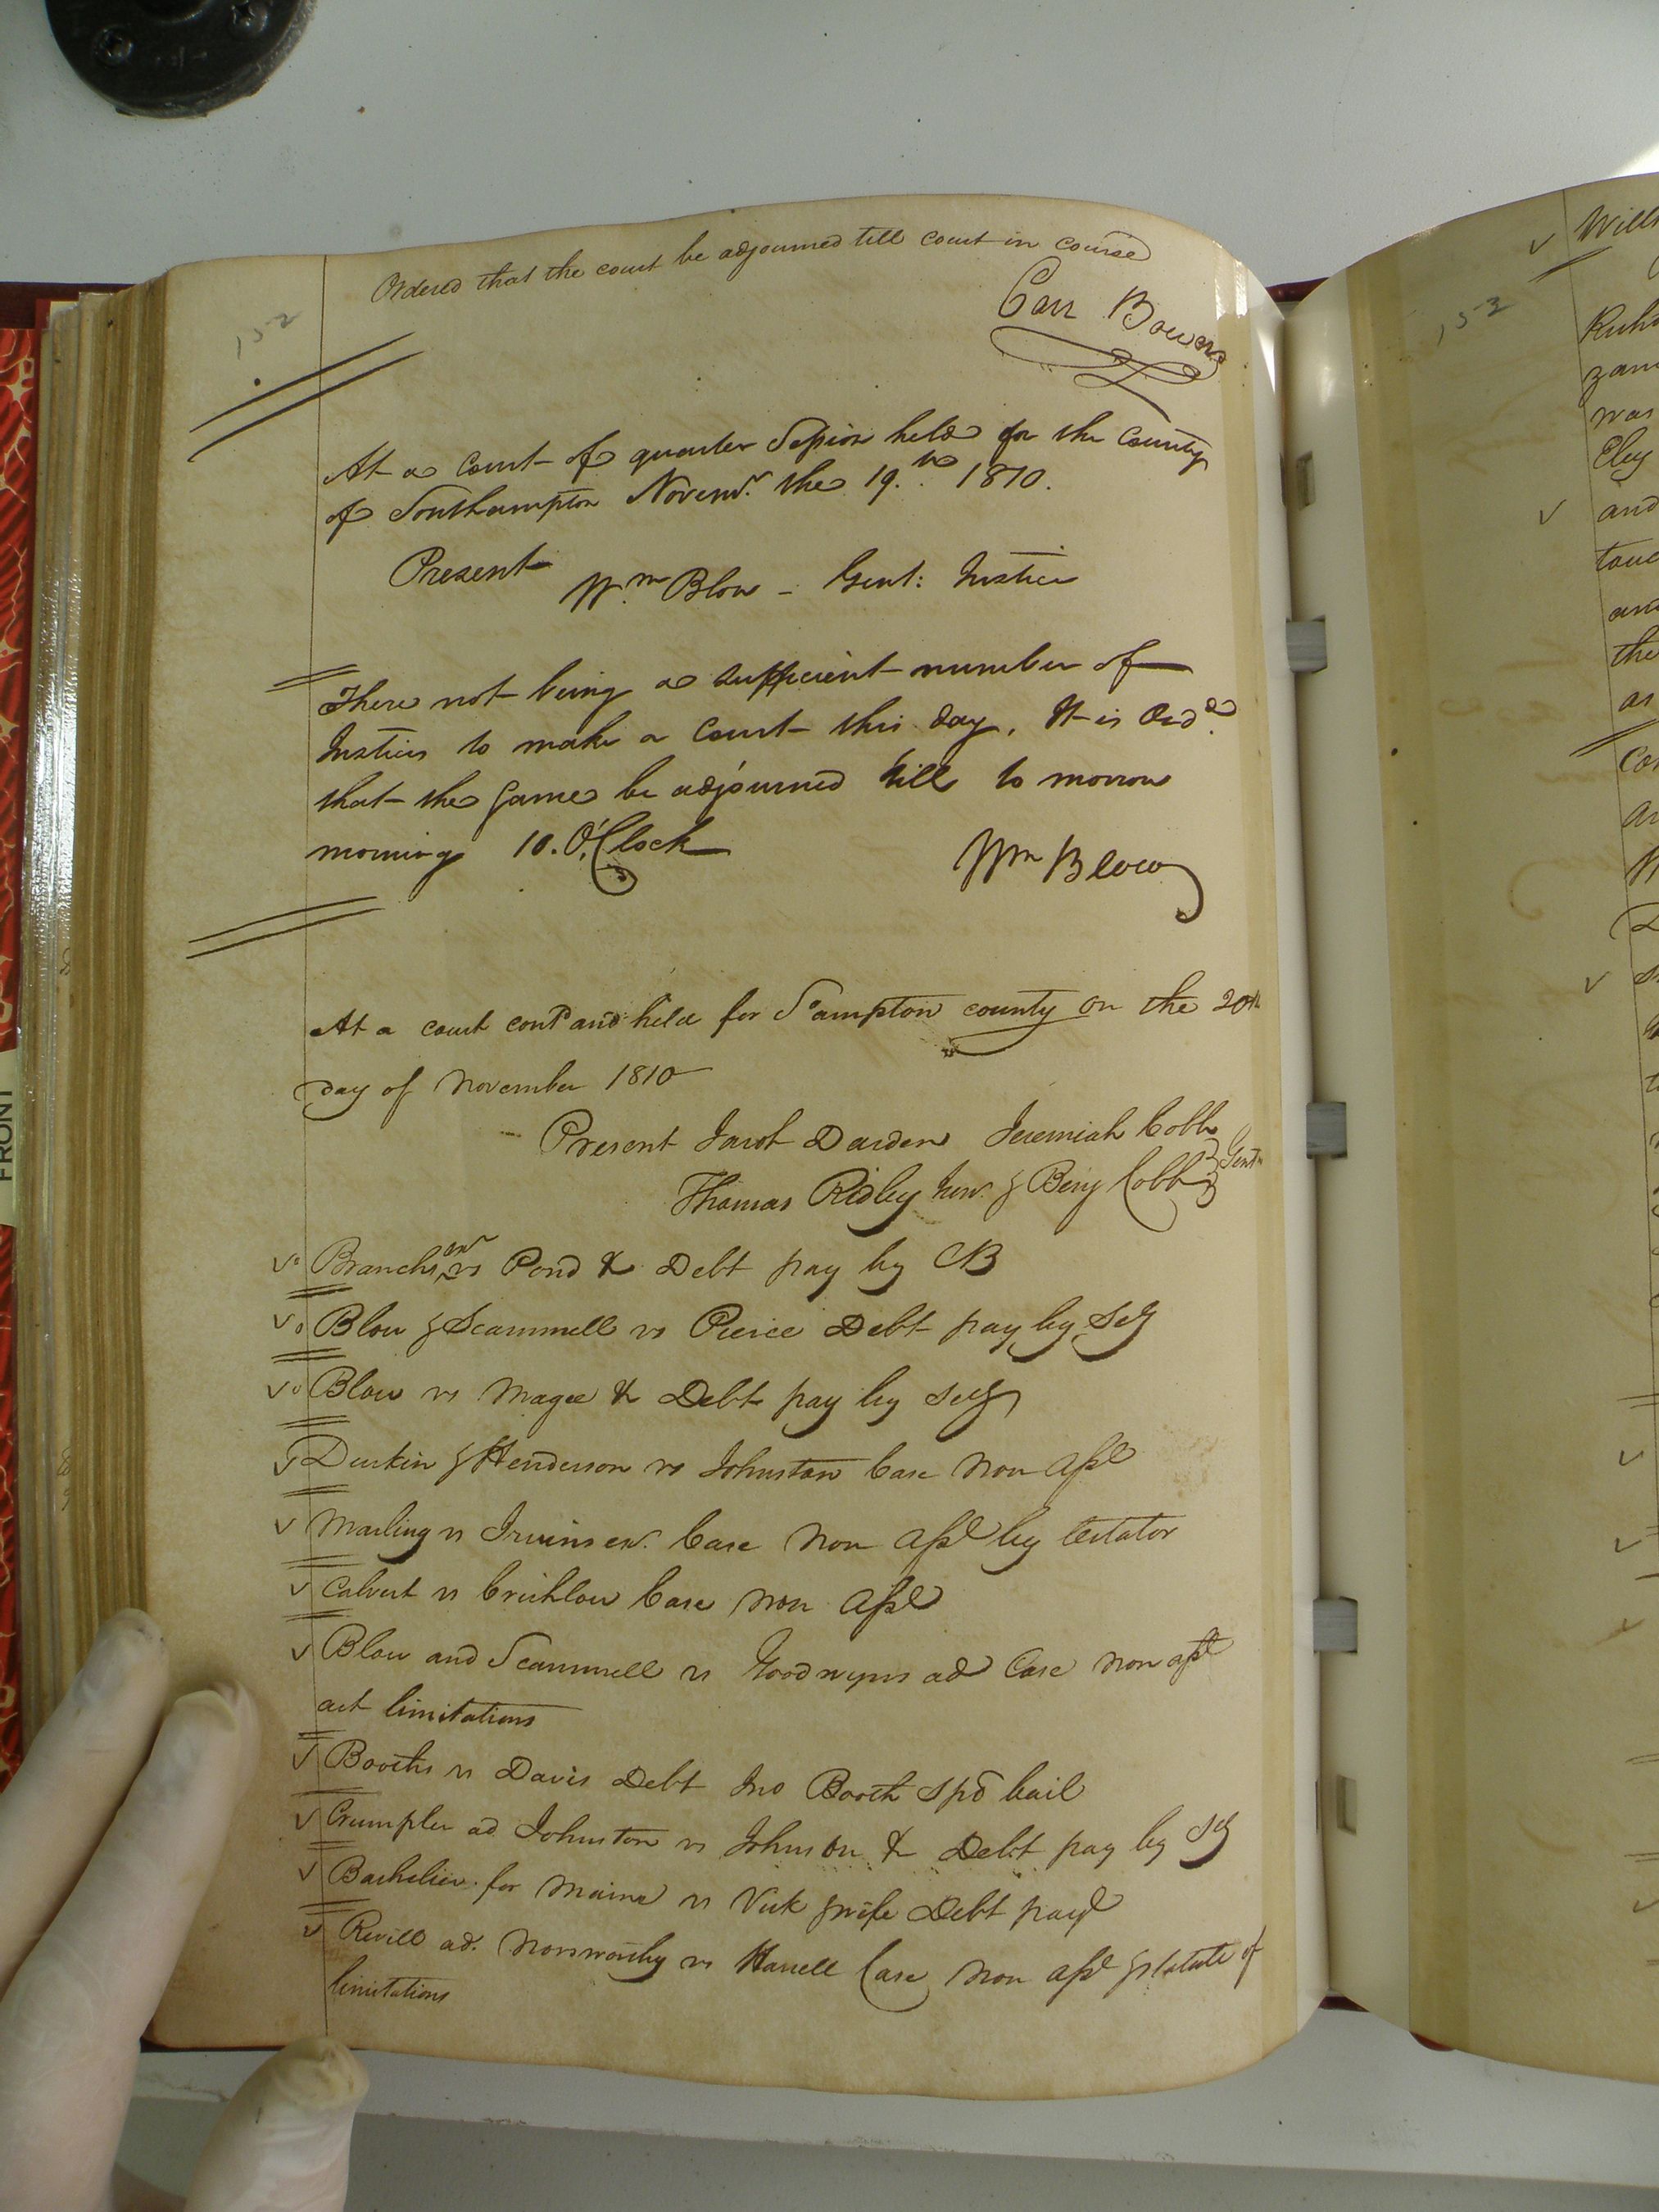 152
Ordered that the court be adjourned till court in course
Carr Bowers
At a Court of quarter Session held for the County
of Southampton Novemr. the 19.th 1810.
Present
Wm. Blow - Gent: Justice
There not being a sufficient number of
Justices to make a Court this day, It is Ordd.
that the same be adjourned till to morrow
morning 10. O'Clock
Wm Blow
At a court contd and held for S'ampton county on the 20th
day of November 1810
Present Jacob Darden Jeremiah Cobb
Thomas Ridley Junr. & Benj Cobb Gent
Branchs exr vs Pond & Debt pay by CB
Blow & Scammell vs Pierce Debt pay by
Blow vs Magee & Debt pay by
Durkin & Henderson vs Johnston Case Non Assl
Marling vs Irwins exr. Case Non Assl by testator
Calvert vs Crichlow Case Non Assl
Blow and Scammell vs Goodwyns ad Case Non assl
act limitations
Booths vs Davis Debt Jno Booth spd bail
Crumpler ad Johnston vs Johnson & Debt pay by
for vs Vick & wife Debt pay
Revill ad. Norsworthy vs Harrell Case Non Assl & statute of
limitations
153
Will
zan
was
Eley
and
the
as
FRONT